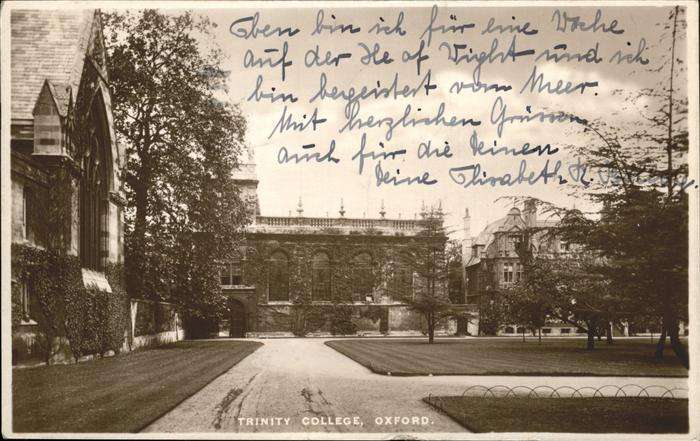 Eben bin ich für eine Woche
auf der Ile of Wight und ich
bin begeistert vom Meer.
Mit herzlichen Grüssen
auch für die Deinen
Deine Elisabeth K.
TRINITY COLLEGE, OXFORD.